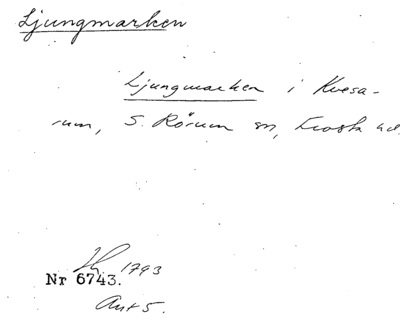 Ljungmarken
Ljungmarken i Kvesa-
rum, S. Rörum sn, Frosta hd.
1793
Nr 6743.
Akt 5.